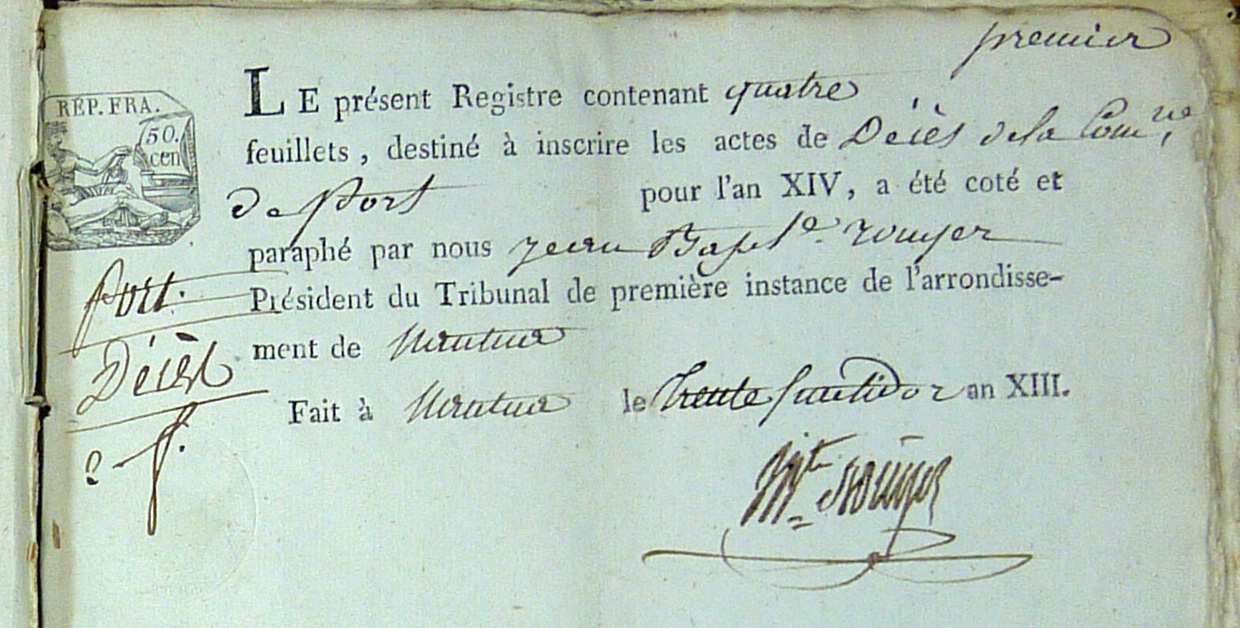 premier
LE présent Registre contenant quatre
feuillets, destiné à inscrire les actes de Décès de la Com.ne
de Port pour l'an XIV, a été coté et
paraphé par nous jean Bapt.e rouyer
Président du Tribunal de première instance de l'arrondisse-
ment de Nantua
Fait à Nantua le trente fructidor an XIII.
RÉP. FRA.
50.
cen
Port.
Décès
2 f.
rouyer